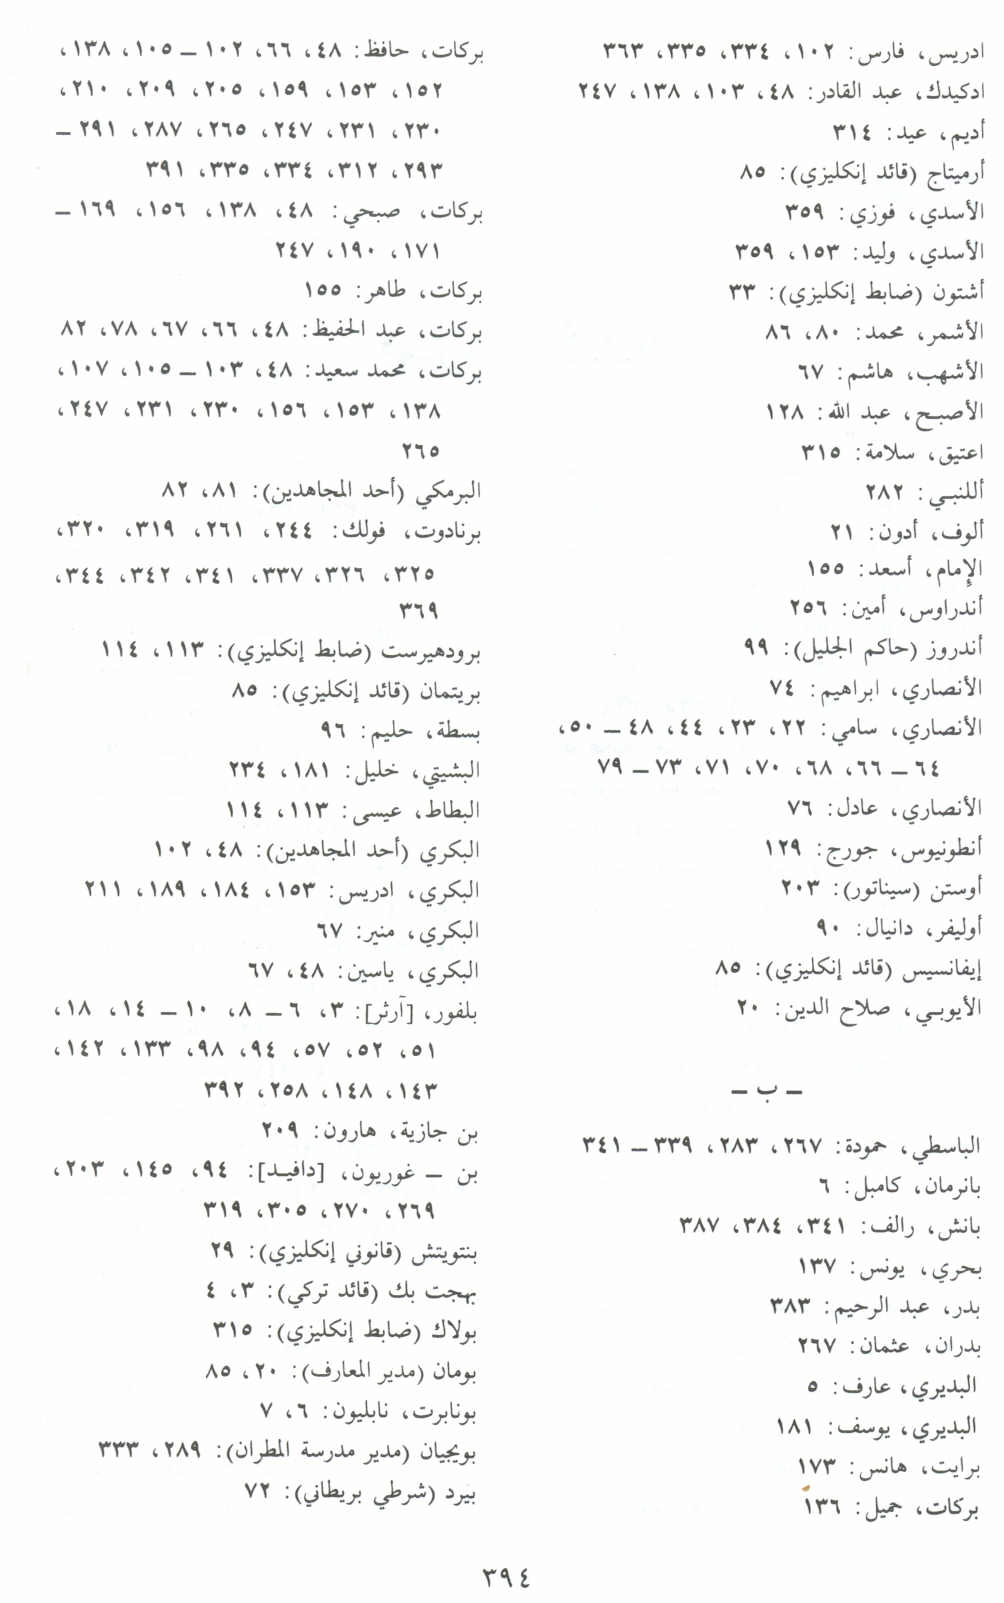 ادريس، فارس: ١٠٢، ٣٣٤، ٣٣٥، ٣٦٣
ادكيدك، عبد القادر: ٤٨، ١٠٣، ١٣٨، ٢٤٧
أديم، عيد: ٣١٤
أرميتاج (قائد إنكليزي): ٨٥
الأسدي، فوزي: ٣٥٩
الأسدي، وليد: ١٥٣، ٣٥٩
أشتون (ضابط إنكليزي): ٣٣
الأشمر، محمد: ٨٠، ٨٦
الأشهب، هاشم: ٦٧
الأصبح، عبد الله: ١٢٨
اعتيق، سلامة: ٣١٥
أللنبي: ٢٨٢
ألوف، أدون: ٢١
الإمام، أسعد: ١٥٥
أندراوس، أمين: ٢٥٦
أندروز (حاكم الجليل): ٩٩
الأنصاري، ابراهيم: ٧٤
الأنصاري، سامي: ٢٢، ٢٣، ٤٤، ٤٨ – ٥٠،
٦٤ – ٦٦، ٦٨، ٧٠، ٧١، ٧٣ – ٧٩
الأنصاري، عادل: ٧٦
أنطونيوس، جورج: ١٢٩
أوستن (سيناتور): ٢٠٣
أوليفر، دانيال: ٩٠
إيفانسيس (قائد إنكليزي): ٨٥
الأيوبي، صلاح الدين: ٢٠
– ب –
الباسطي، حمودة: ٢٦٧، ٢٨٣، ٣٣٩ – ٣٤١
بانرمان، كامبل: ٦
بانش، رالف: ٣٤١، ٣٨٤، ٣٨٧
بحري، يونس: ١٣٧
بدر، عبد الرحيم: ٣٨٣
بدران، عثمان: ٢٦٧
البديري، عارف: ٥
البديري، يوسف: ١٨١
برايت، هانس: ١٧٣
بركات، جميل: ١٣٦
بركات، حافظ: ٤٨، ٦٦، ١٠٢ – ١٠٥، ١٣٨،
١٥٢، ١٥٣، ١٥٩، ٢٠٥، ٢٠٩، ٢١٠،
٢٣٠، ٢٣١، ٢٤٧، ٢٦٥، ٢٨٧، ٢٩١ –
٢٩٣، ٣١٢، ٣٣٤، ٣٣٥، ٣٩١
بركات، صبحي: ٤٨، ١٣٨، ١٥٦، ١٦٩ –
١٧١، ١٩٠، ٢٤٧
بركات، طاهر: ١٥٥
بركات، عبد الحفيظ: ٤٨، ٦٦، ٦٧، ٧٨، ٨٢
بركات، محمد سعيد: ٤٨، ١٠٣ – ١٠٥، ١٠٧،
١٣٨، ١٥٣، ١٥٦، ٢٣٠، ٢٣١، ٢٤٧،
٢٦٥
البرمكي (أحد المجاهدين): ٨١، ٨٢
برنادوت، فولك: ٢٤٤، ٢٦١، ٣١٩، ٣٢٠،
٣٢٥، ٣٢٦، ٣٣٧، ٣٤١، ٣٤٢، ٣٤٤،
٣٦٩
برودهيرست (ضابط إنكليزي): ١١٣، ١١٤
بريتمان (قائد إنكليزي): ٨٥
بسطة، حليم: ٩٦
البشيتي، خليل: ١٨١، ٢٣٤
البطاط، عيسى: ١١٣، ١١٤
البكري (أحد المجاهدين): ٤٨، ١٠٢
البكري، ادريس: ١٥٣، ١٨٤، ١٨٩، ٢١١
البكري، منير: ٦٧
البكري، ياسين: ٤٨، ٦٧
بلفور، [آرثر]: ٣، ٦ – ٨، ١٠ – ١٤، ١٨،
٥١، ٥٢، ٥٧، ٩٤، ٩٨، ١٣٣، ١٤٢،
١٤٣، ١٤٨، ٢٥٨، ٣٩٢
بن جازية، هارون: ٢٠٩
بن – غوريون، [دافيد]: ٩٤، ١٤٥، ٢٠٣،
٢٦٩، ٢٧٠، ٣٠٥، ٣١٩
بنتويتش (قانوني إنكليزي): ٢٩
بهجت بك (قائد تركي): ٣، ٤
بولاك (ضابط إنكليزي): ٣١٥
بومان (مدير المعارف): ٢٠، ٨٥
بونابرت، نابليون: ٦، ٧
بويجيان (مدير مدرسة المطران): ٢٨٩، ٣٣٣
بيرد (شرطي بريطاني): ٧٢
٣٩٤